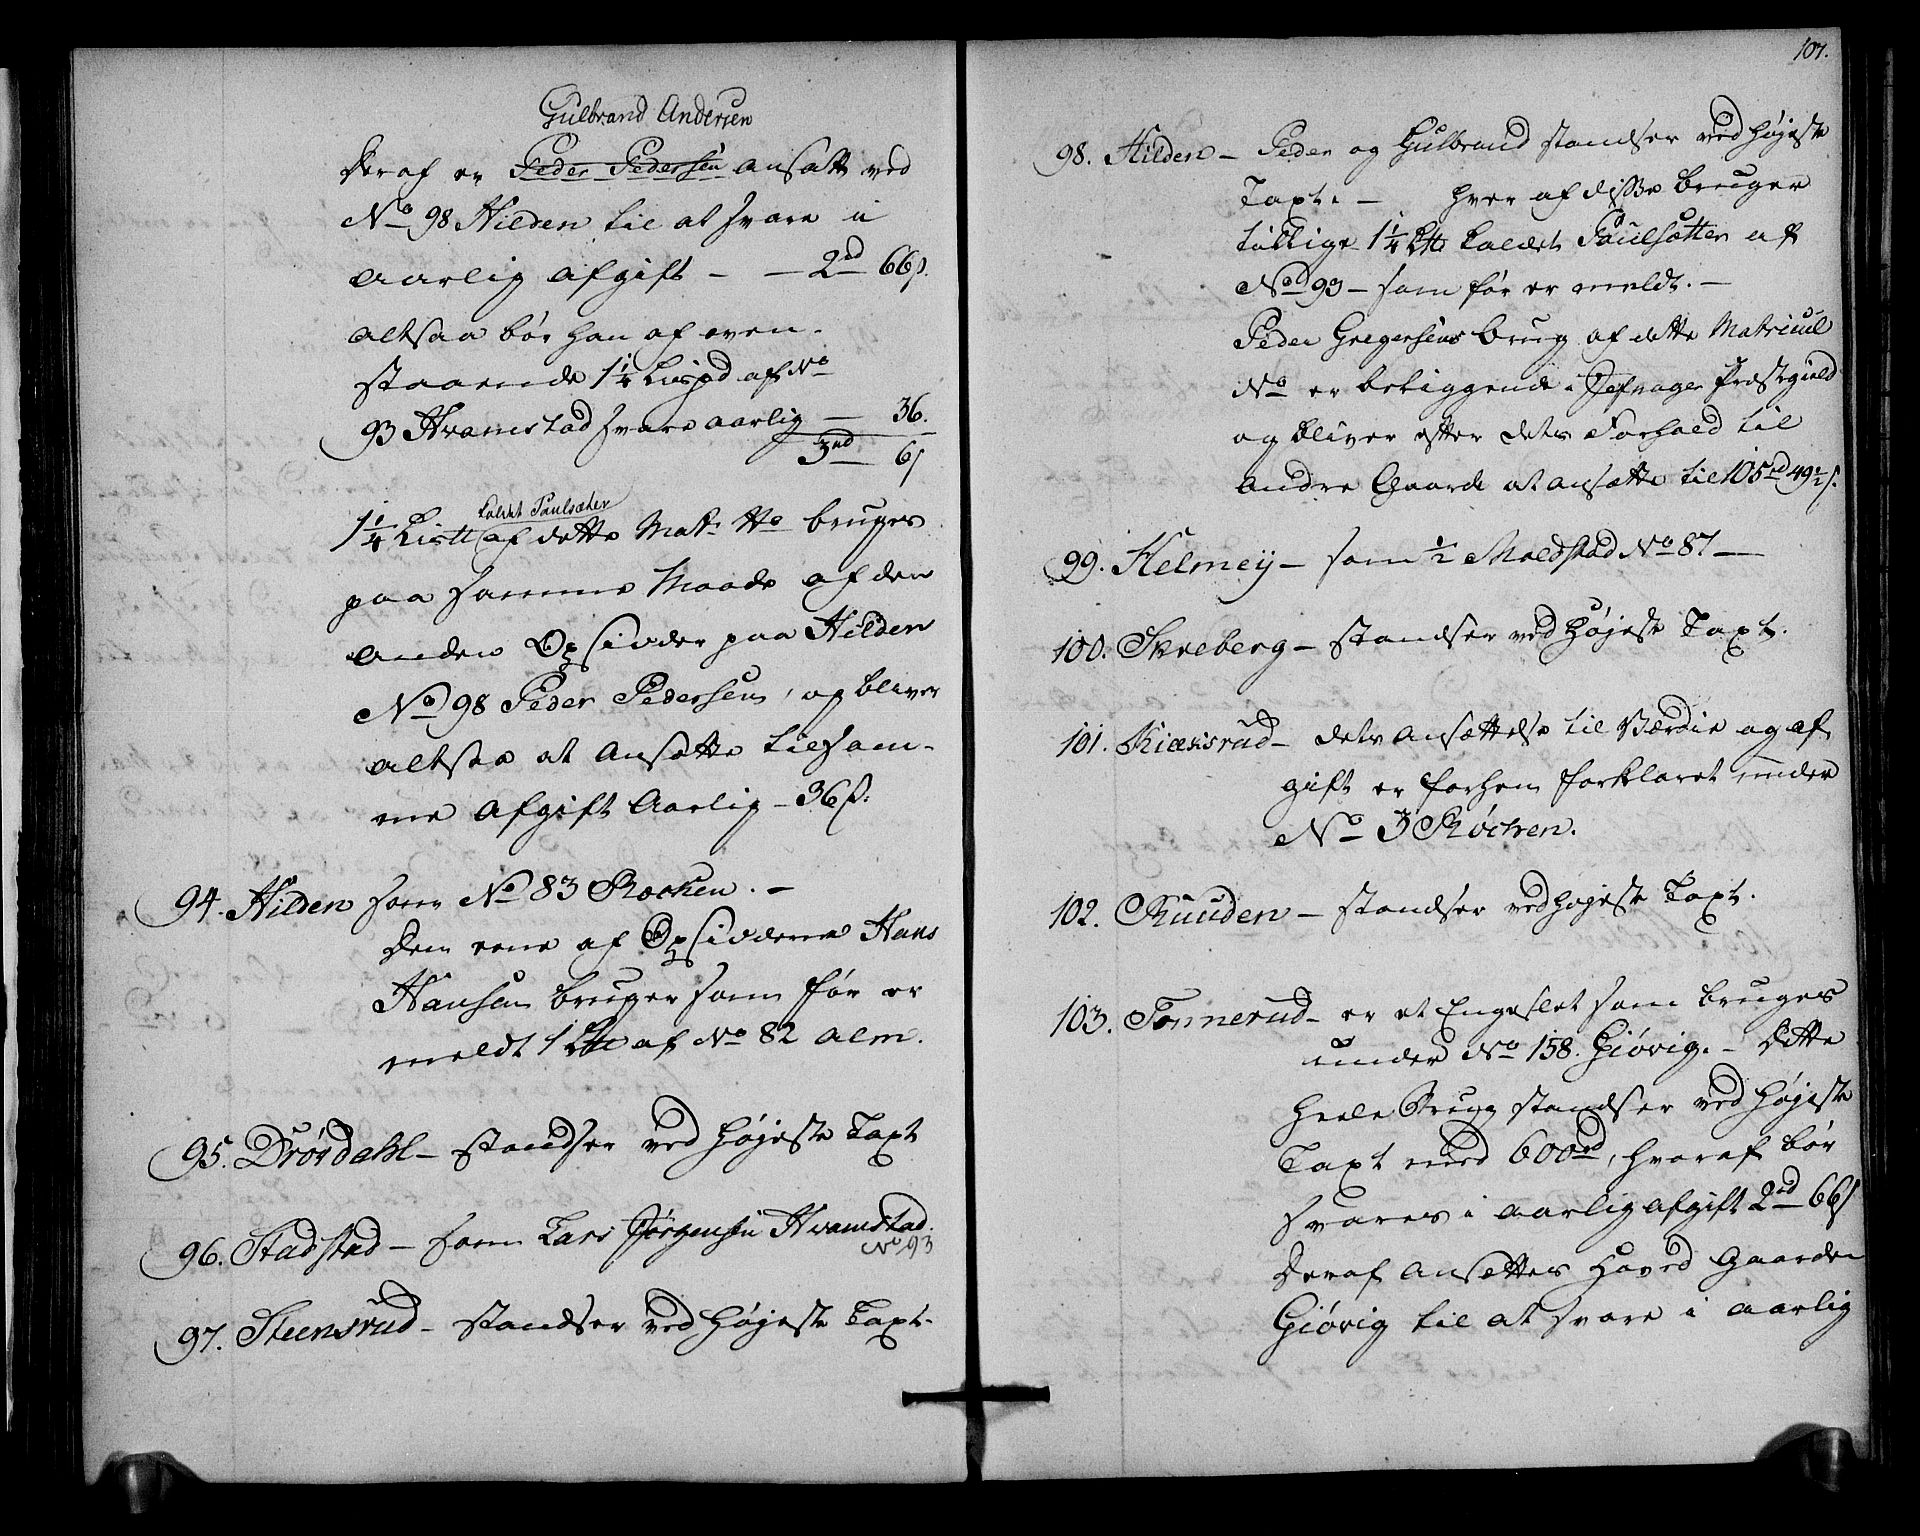 Gulbrand Andersen
Deraf er Peder Pedersen ansatt ved
No 98 Hilden til at svare i
aarlig afgift - - 2rd 66s.
altsaa bør han af oven-
staaende 1 1/4 Lispd af No
93 Hvamstad svare aarlig - 36.
3rd 6s
kaldet Paulsæter
1 1/4 Lis℔ af dette Mat: No bruges
paa samme Maade af den
anden Opsidder paa Hilden
No 98 Peder Pedersen, og bliver
altsaa at Ansætte tilsam-
me Afgift Aarlig - 36s.
94. Hilden som No 83 Rocken. -
Den eene af Opsidderne Hans
Hansen bruger som før er
meldt 1 L℔ af No 82 Alm.
95. Drørdahl - standser ved højeste Taxt
96. Stadstad - som Lars Jørgensen Hvamstad.
No 93
97. Steensrud - standser ved højeste Taxt.
107.
98. Hilden - Peder og Gulbrand standser ved højeste
Taxt. - hver af disse bruger
tillige 1 1/4 L℔ kaldet Paulsætter af
No 93 - som før er meldt. -
Peder Gregersens brug af dette Matricul
No er beliggende i Jefnager Præstegield
og bliver efter dets Forhold til
andre Gaarde at ansætte til 105rd 49 1/2 s.
99. Helmeÿ - som 1/2 Moldstad No 87 -
100. Skreberg - standser ved højeste Taxt.
101. Kiæksrud - dets Ansættelse til Værdie og af-
gift er forhen forklaret under
No 3 Røchen.
102. Ruuden - standser ved højeste Taxt.
103. Tonnerud - er et Engeslet som bruges
under No 158. Giøvig. - Dette
heele Brug standser ved højeste
Taxt med 600rd, hvoraf bør
svares i aarlig afgift 2rd 66s
Deraf Ansættes Hoved Gaarden
Giøvig til at svare i aarlig